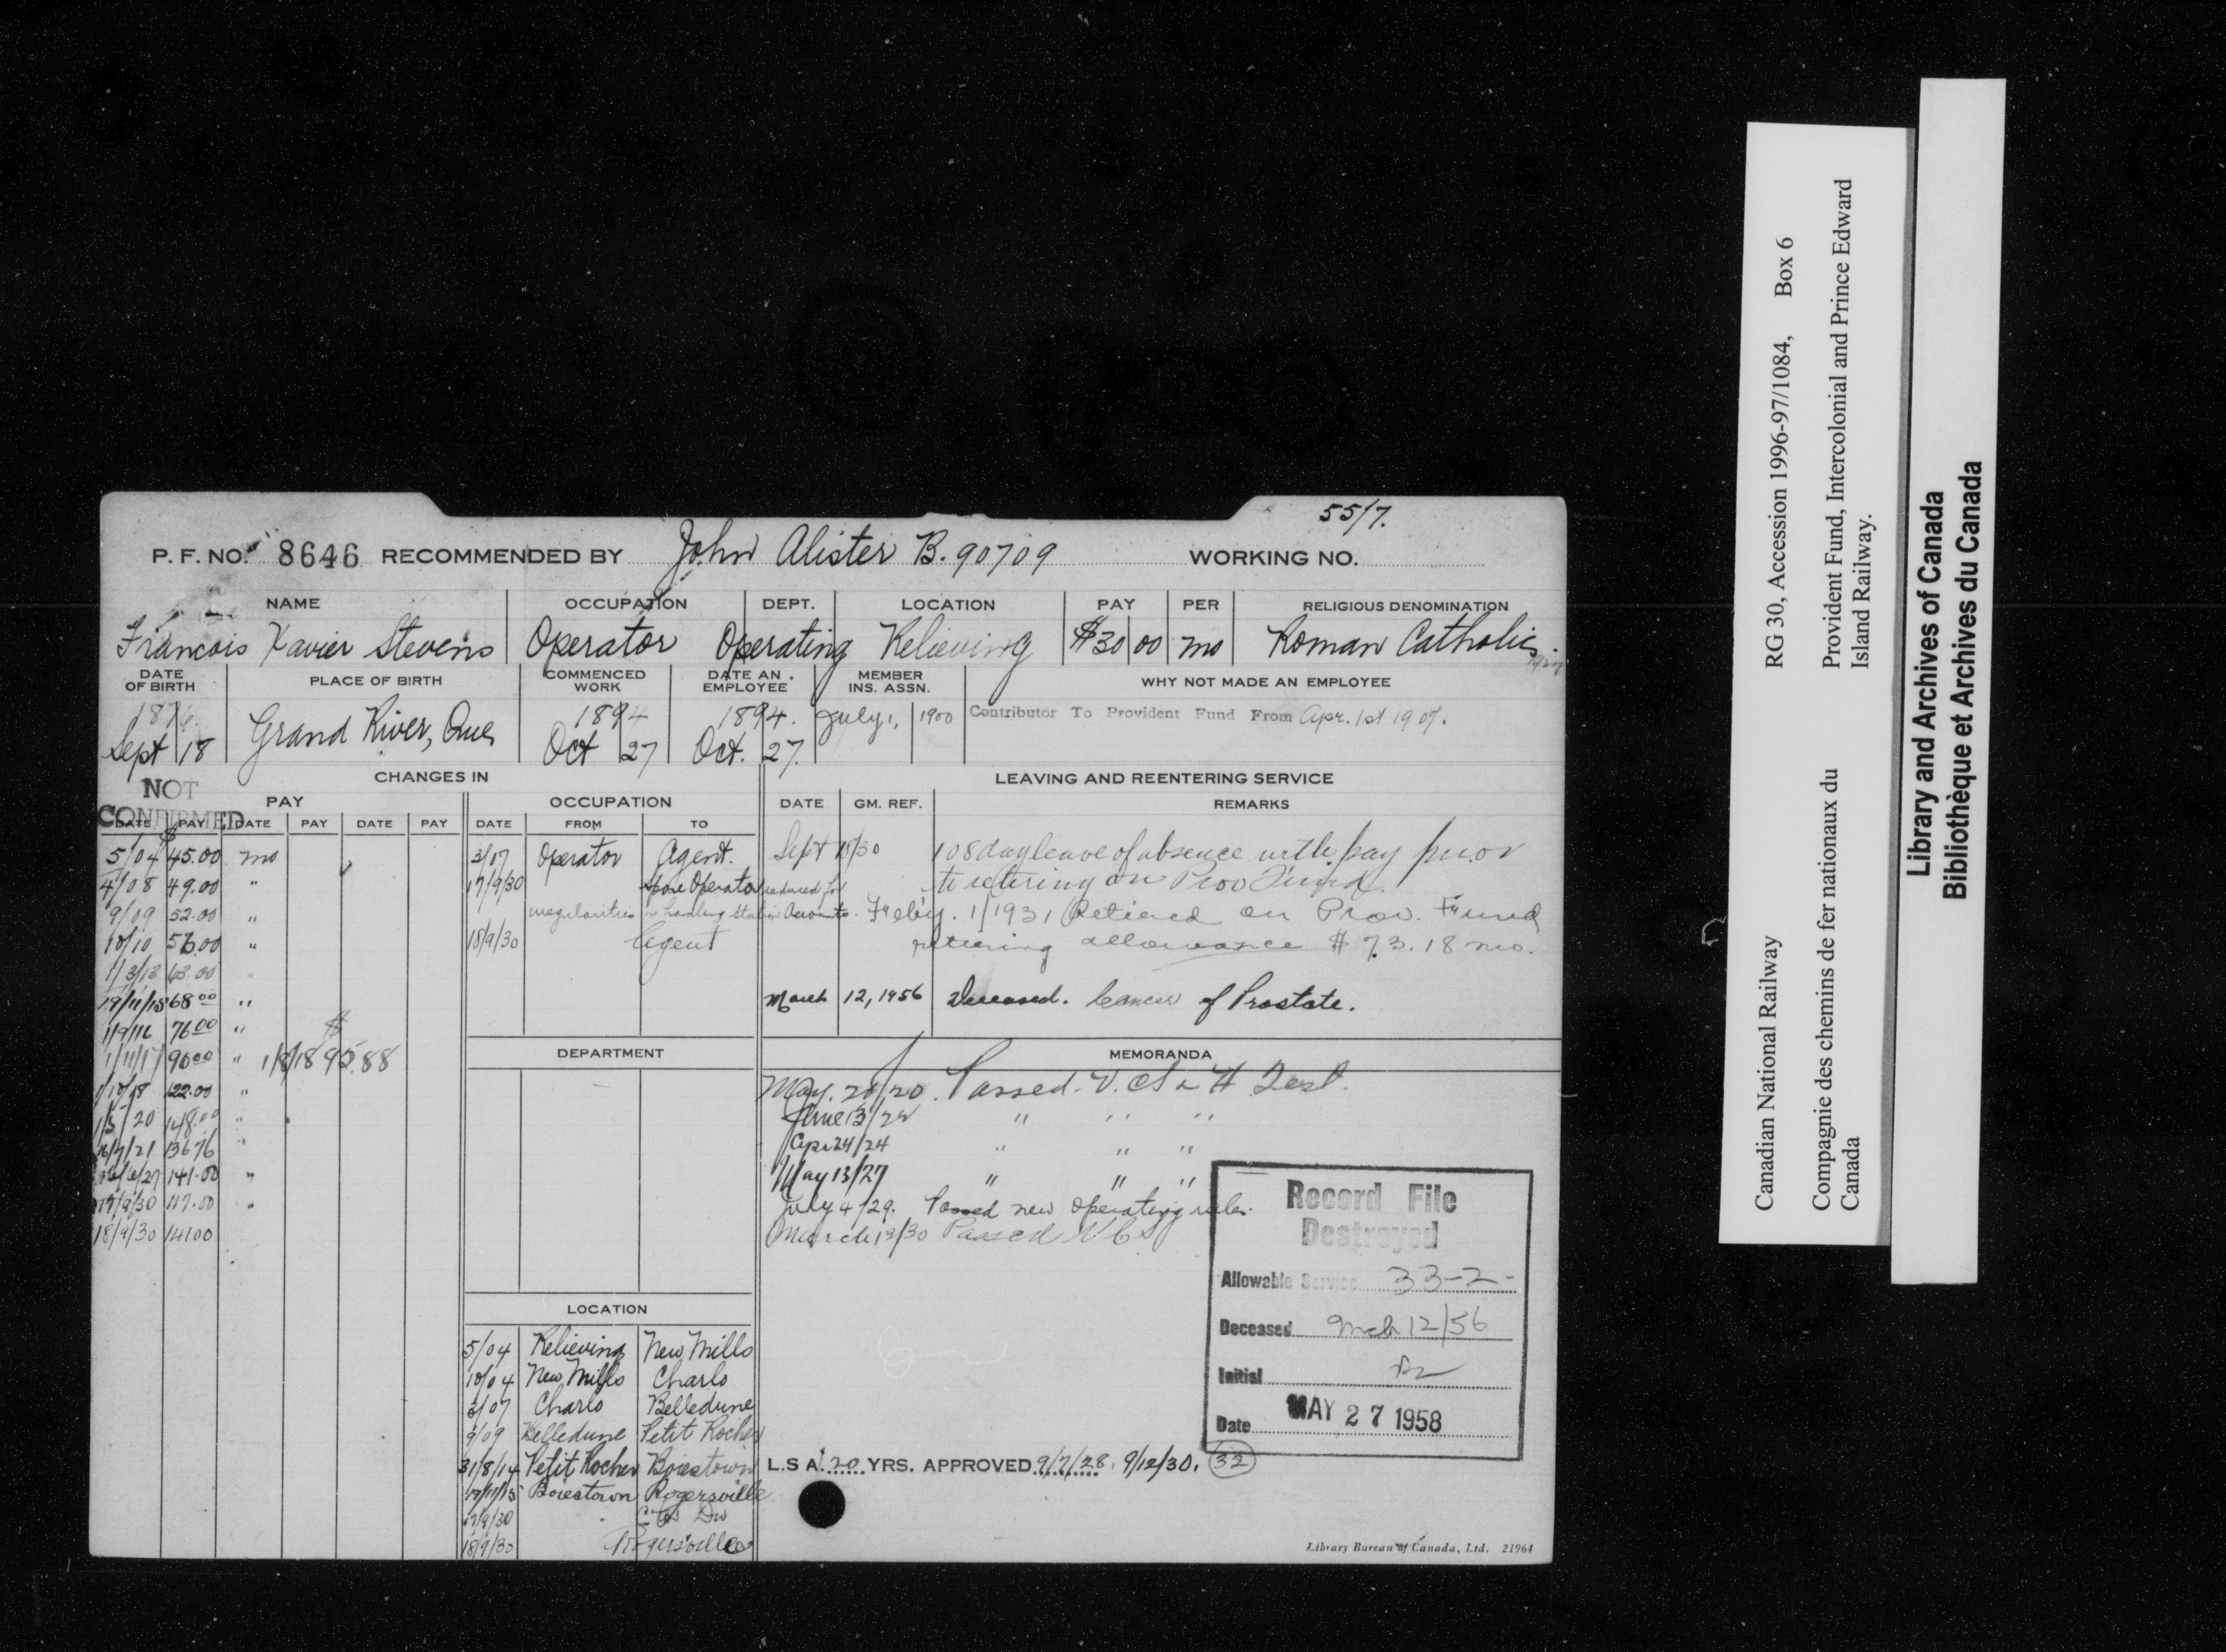 55/7.
P. F. NO. 8646 RECOMMENDED BY John Alister B. 90709 WORKING NO.
NAME OCCUPATION DEPT. LOCATION PAY PER RELIGIOUS DENOMINATION
Francois Xavier Stevens Operator Operating Relieving $30 00 mo Roman Catholic
DATE OF BIRTH PLACE OF BIRTH COMMENCED WORK DATE AN EMPLOYEE MEMBER INS. ASSN. WHY NOT MADE AN EMPLOYEE
1876. Sept 18 Grand River, Que 1894 Oct 27 1894. Oct. 27. July 1, 1900 Contributor To Provident Fund From Apr. 1st 1907.
NOT CONFIRMED
CHANGES IN
PAY
DATE PAY DATE PAY DATE PAY
5/04 $45.00 mo
4/08 49.00 "
9/09 52.00 "
10/10 56.00 "
1/3/13 63.00 "
19/11/15 68 00 "
1/9/16 76 00 "
1/11/17 90 00 " 1/8/18 $ 95.88
1/10/18 122.00 "
1/5/20 148.00 "
16/7/21 136 76 "
141.00 "
17/9/30 117.00 "
18/9/30 141 00
OCCUPATION
DATE FROM TO
3/07 Operator Agent.
17/9/30 Spare Operator reduced for
irregularities in handling Station Accounts.
18/9/30 Agent
DEPARTMENT
LOCATION
5/04 Relieving New Mills
10/04 New Mills Charlo
3/07 Charlo Belledune
9/09 Belledune Petit Rocher
31/8/14 Petit Rocher Boiestown
19/11/15 Boiestown Rogersville
17/9/30
18/9/30 Rogersville
LEAVING AND REENTERING SERVICE
DATE GM. REF. REMARKS
Sept 18/30 108 day leave of absence with pay prior
to retiring on Prov Fund.
Feby. 1/1931 Retired on Prov. Fund
retiring allowance $73.18 mo.
March 12, 1956 Deceased. Cancer of Prostate.
MEMORANDA
May. 20/20. Passed. V. C. S & H Test.
June 13/22 " " "
Apr 24/24 " " "
May 13/27 " " "
July 4/29. Passed new operating rules.
March 13/30 Passed V C S
Record File
Destroyed
Allowable Service 33-2-
Deceased Mch 12/56
Initial
Date MAY 27 1958
L.S A. 20 YRS. APPROVED 9/7/28. 9/12/30. 32
Library Bureau of Canada, Ltd. 21964
Canadian National Railway RG 30, Accession 1996-97/1084, Box 6
Compagnie des chemins de fer nationaux du Canada
Provident Fund, Intercolonial and Prince Edward Island Railway.
Library and Archives of Canada
Bibliothèque et Archives du Canada